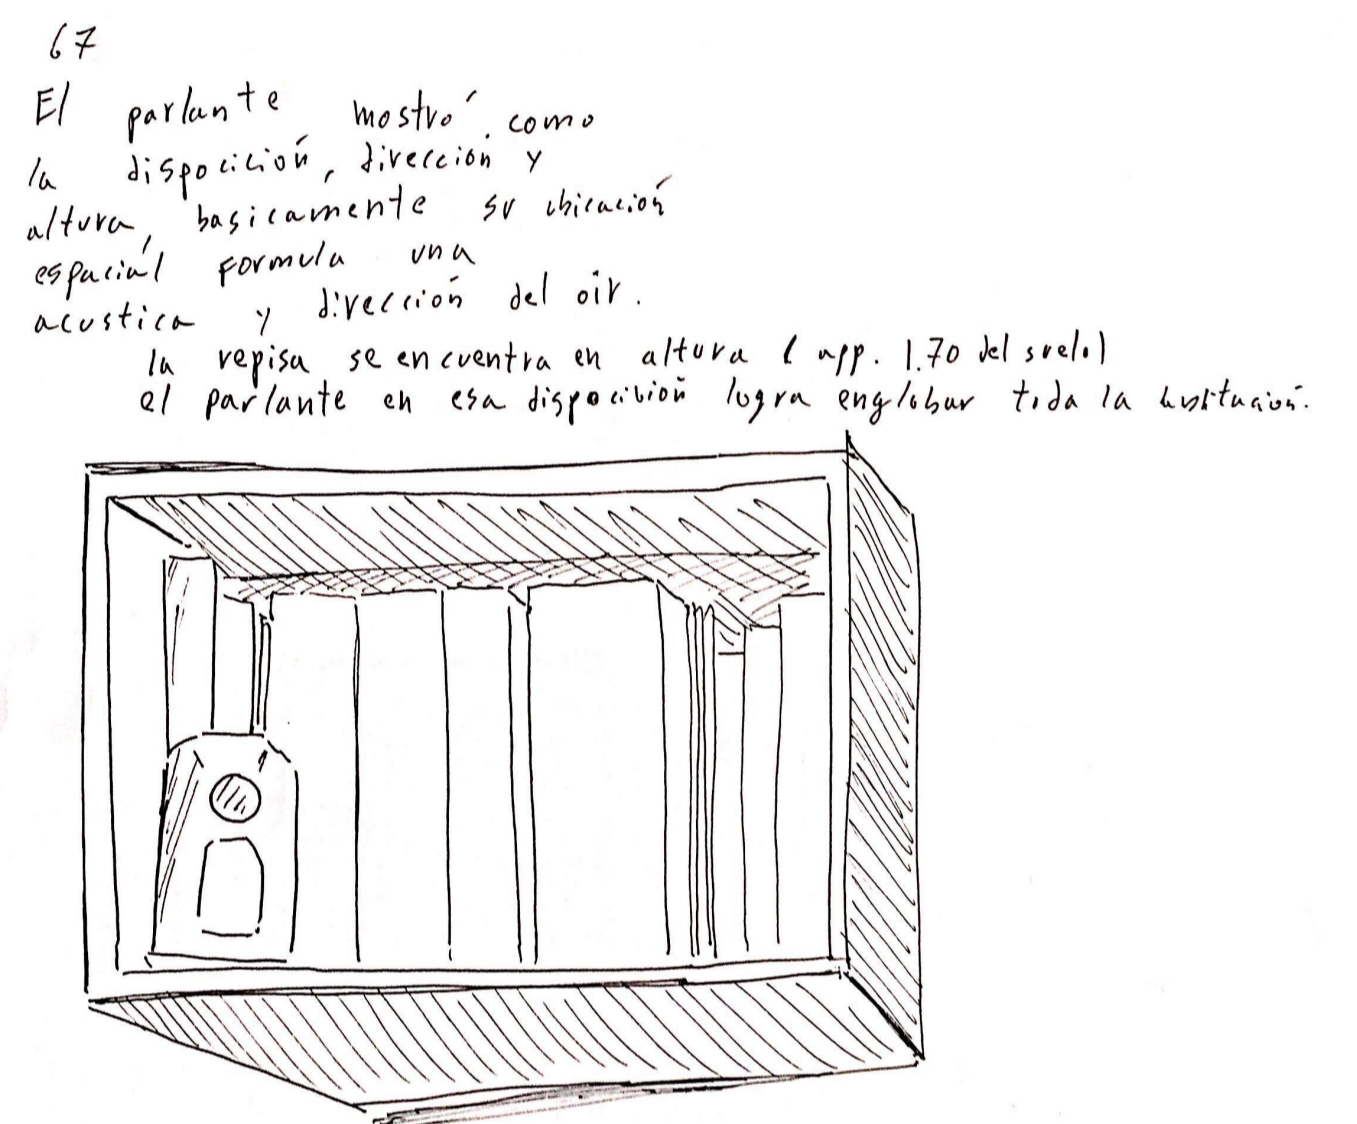 67
El parlante mostró como
la dispocición, dirección y
altura, basicamente su ubicación
espaciál formula una
acustica y dirección del oir.
la repisa se encuentra en altura ( app. 1.70 del suelo)
el parlante en esa dispocición logra englobar toda la habitación.